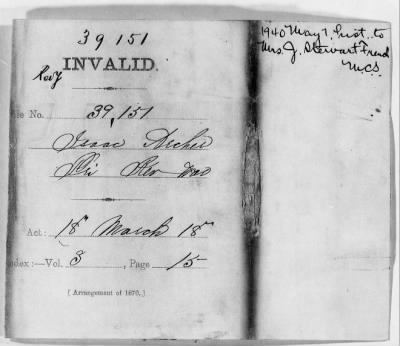 39 151
INVALID.
File No. 39,151
Isaac Archer
Pri Rev War
Act: 18 March 18
Index:—Vol. 3, Page 15
(Arrangement of 1870.)
1940 May 7, hist. to
Mrs. J. Stewart French
M.C.S.